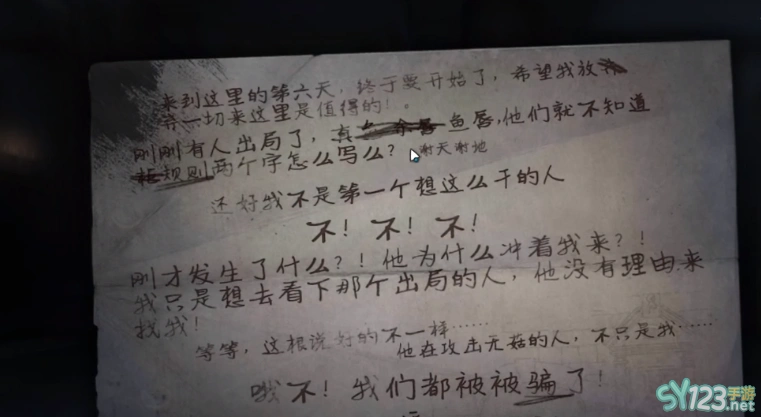 来到这里的第六天，终于要开始了，希望我放
弃一切来这里是值得的！。
刚刚有人出局了，真 鱼唇，他们就不知道
规则两个字怎么写么？谢天谢地
还好我不是第一个想这么干的人
不！不！不！
刚才发生了什么？！他为什么冲着我来？！
我只是想去看下那个出局的人，他没有理由来
找我！
等等，这根说好的不一样……
他在攻击无菇的人，不只是我……
哦不！我们都被被骗了！
SY123手游
.net